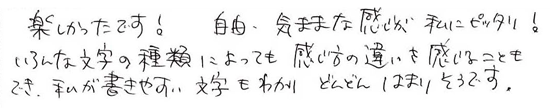 楽しかったです! 自由、気ままな感じが 私にピッタリ!
いろんな文字の種類によっても 感じ方の違いを感じることも
でき、私が書きやすい文字もわかり どんどん はまりそうです。